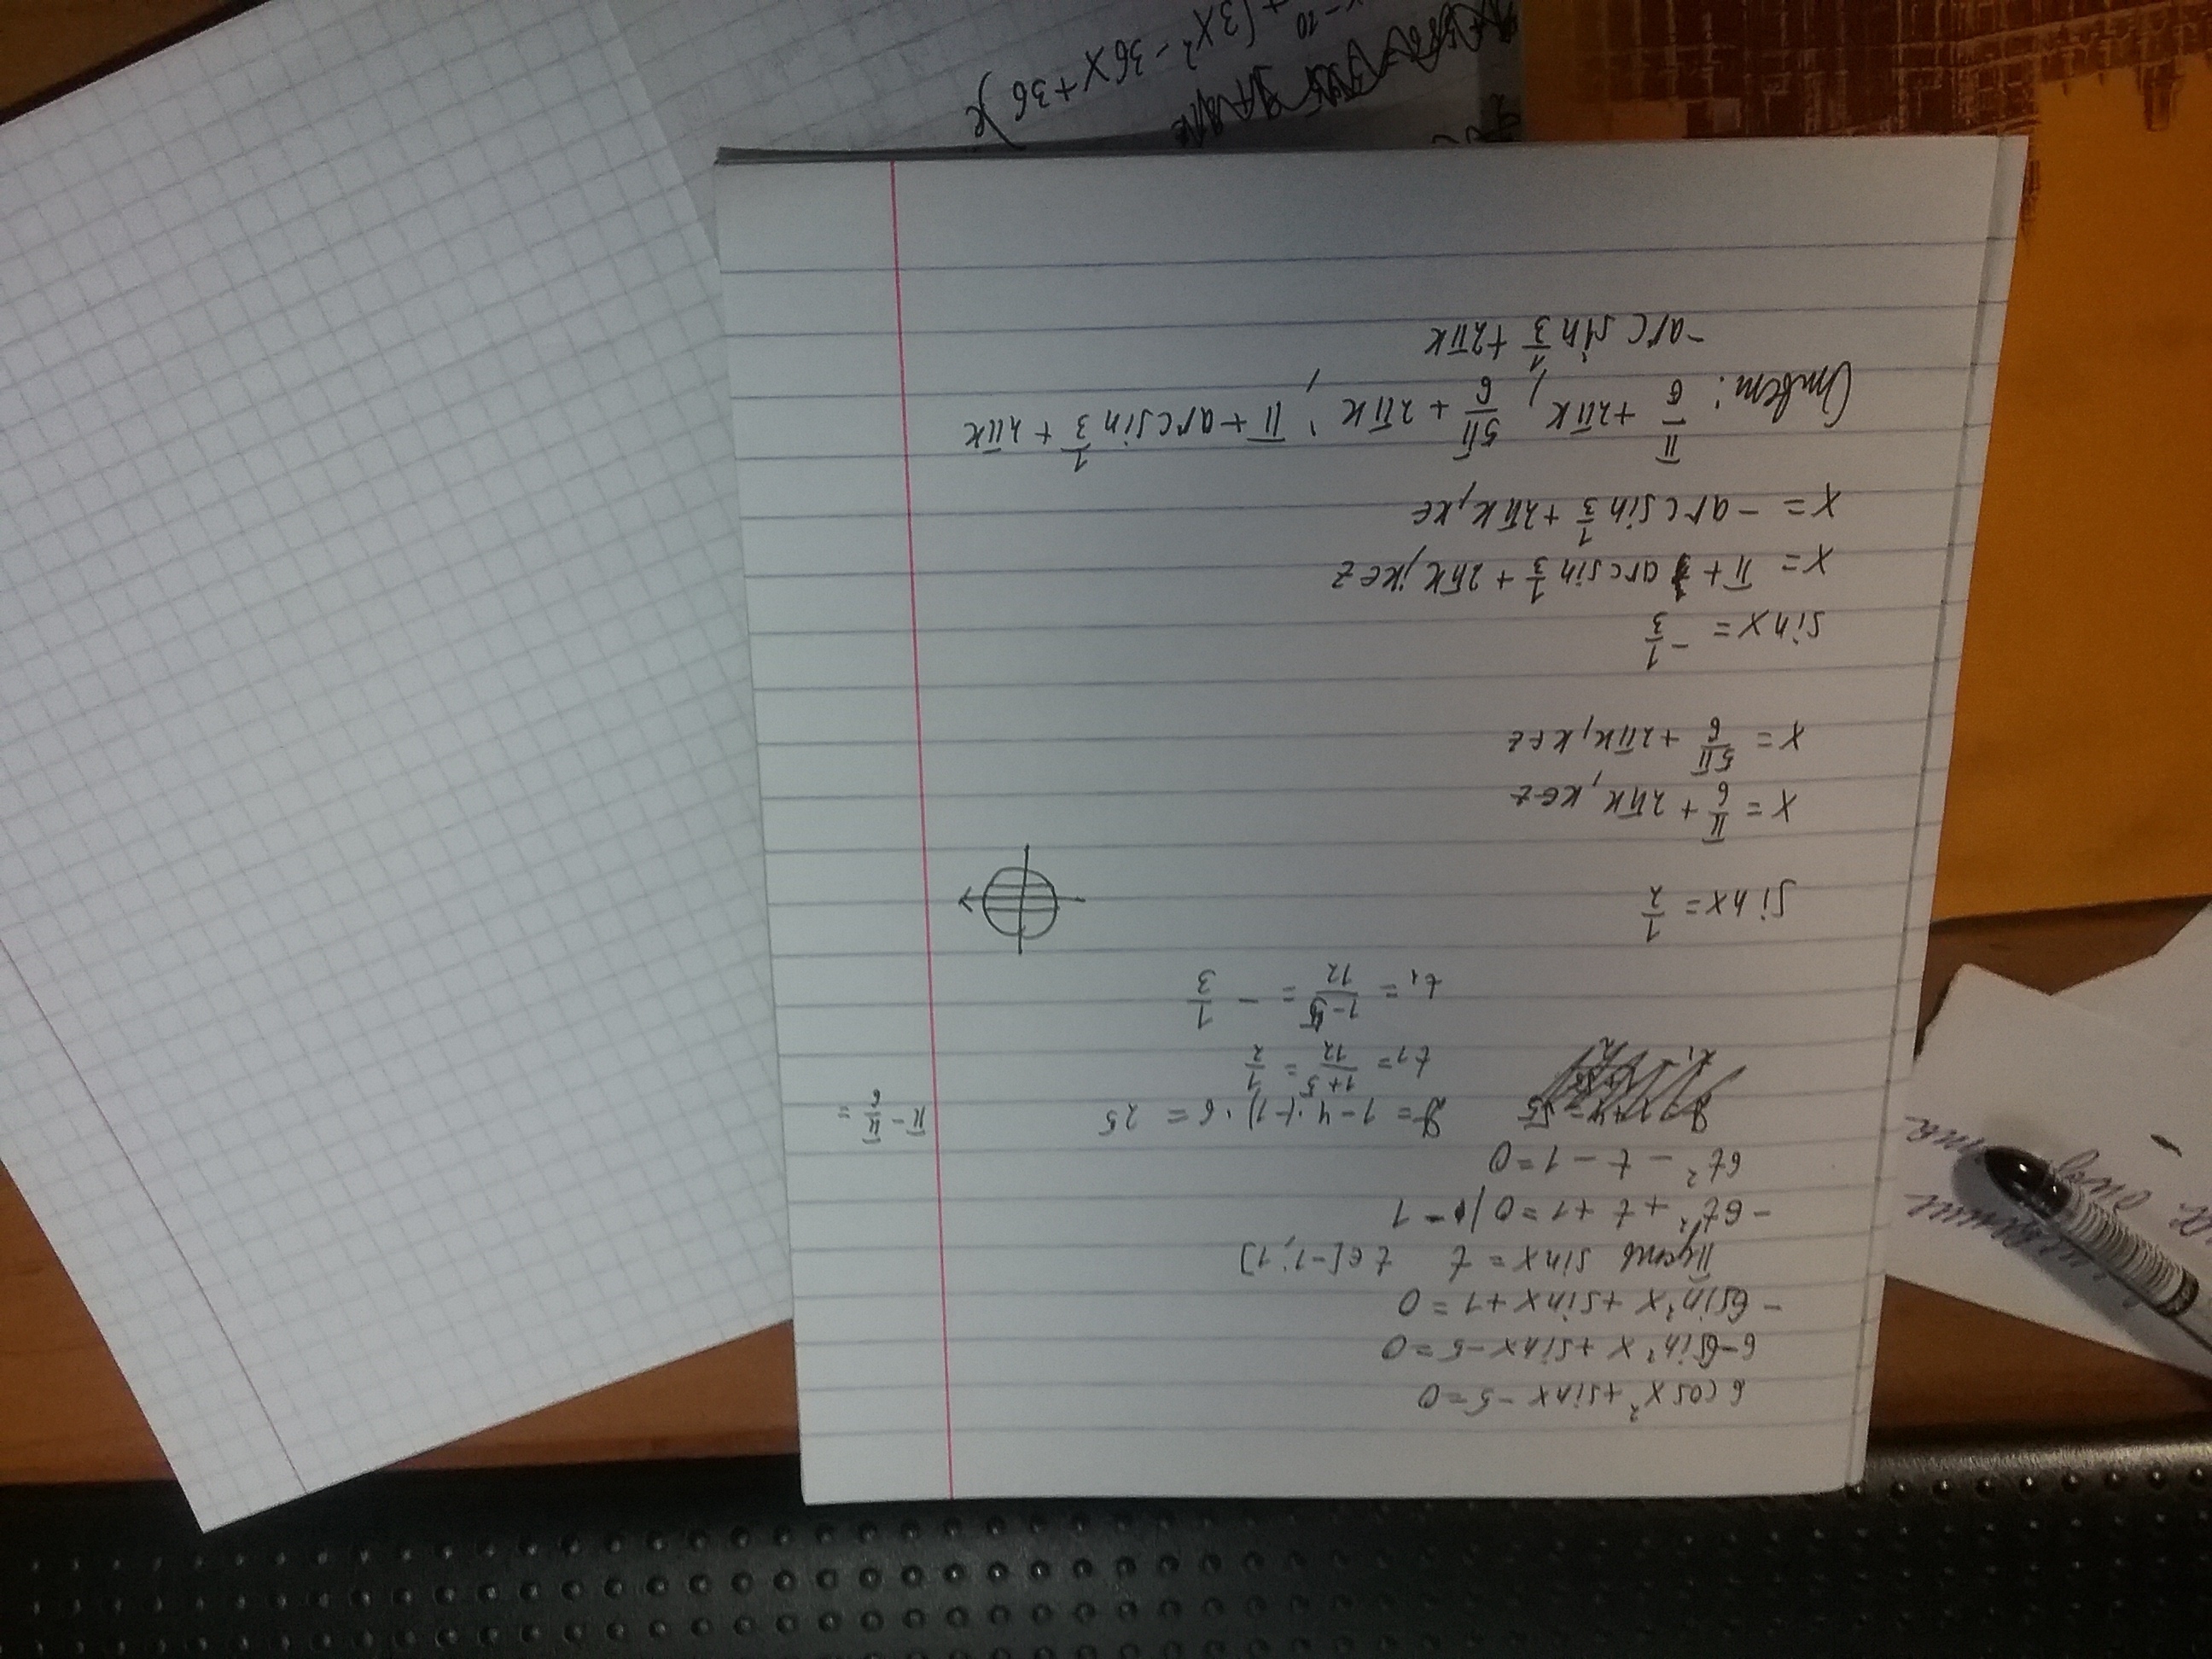 6 cos x² + sin x - 5 = 0
6 - 6sin² x + sin x - 5 = 0
- 6sin² x + sin x + 1 = 0
Пусть sin x = t t ∈ [-1; 1]
- 6t² + t + 1 = 0 | · - 1
6t² - t - 1 = 0
D = 1 - 4 · (-1) · 6 = 25 π - π/6 =
t₁ = (1+5)/12 = 1/2
t₂ = (1-5)/12 = - 1/3
sin x = 1/2
x = π/6 + 2πk, k ∈ z
x = 5π/6 + 2πk, k ∈ z
sin x = - 1/3
x = π + arcsin 1/3 + 2πk, k ∈ z
x = - arcsin 1/3 + 2πk, k ∈
Ответ: π/6 + 2πk, 5π/6 + 2πk, π + arcsin 1/3 + 2πk,
- arcsin 1/3 + 2πk
x - 10 + (3x² - 36x + 36)